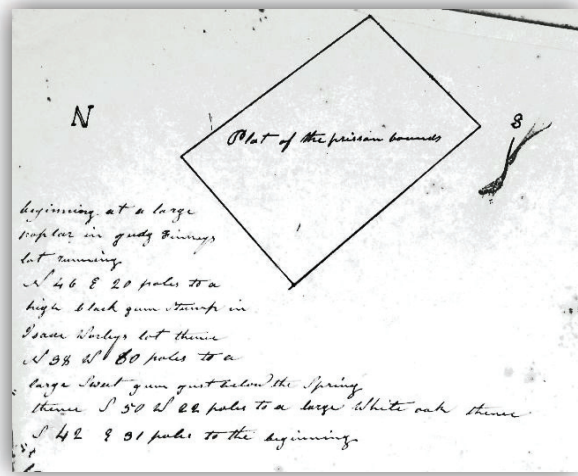 N
Plat of the prison bounds
S
beginning at a large
poplar in gudg Finneys
lot running
N 46 E 20 poles to a
high black gum stump in
Isaac Worleys lot thence
N 38 W 30 poles to a
large Sweet gum gust below the Spring
thence S 50 W 22 poles to a large White oak thence
S 42 E 31 poles to the beginning